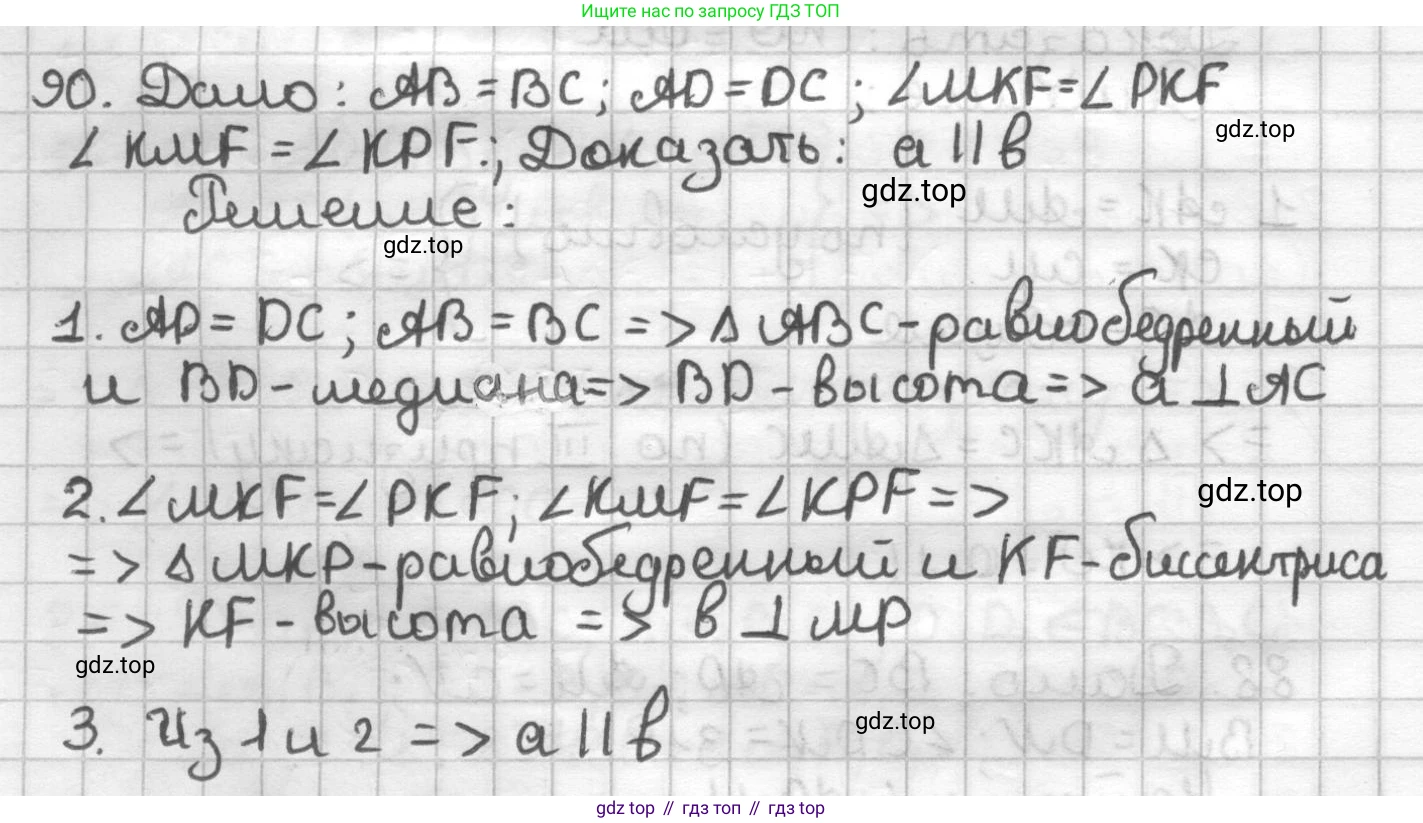 Ищите нас по запросу ГДЗ ТОП
90. Дано: AB = BC; AD = DC; ∠MKF = ∠PKF
gdz.top
∠KMF = ∠KPF.; Доказать: a || b
gdz.top
Решение:
gdz.top
1. AD = DC; AB = BC => Δ ABC - равнобедренный
и BD - медиана => BD - высота => a ⊥ AC
2. ∠MKF = ∠PKF; ∠KMF = ∠KPF =>
gdz.top
=> Δ MKP - равнобедренный и KF - биссектриса
=> KF - высота => b ⊥ MP
gdz.top
3. Из 1 и 2 => a || b
gdz.top
gdz top // гдз топ // gdz top